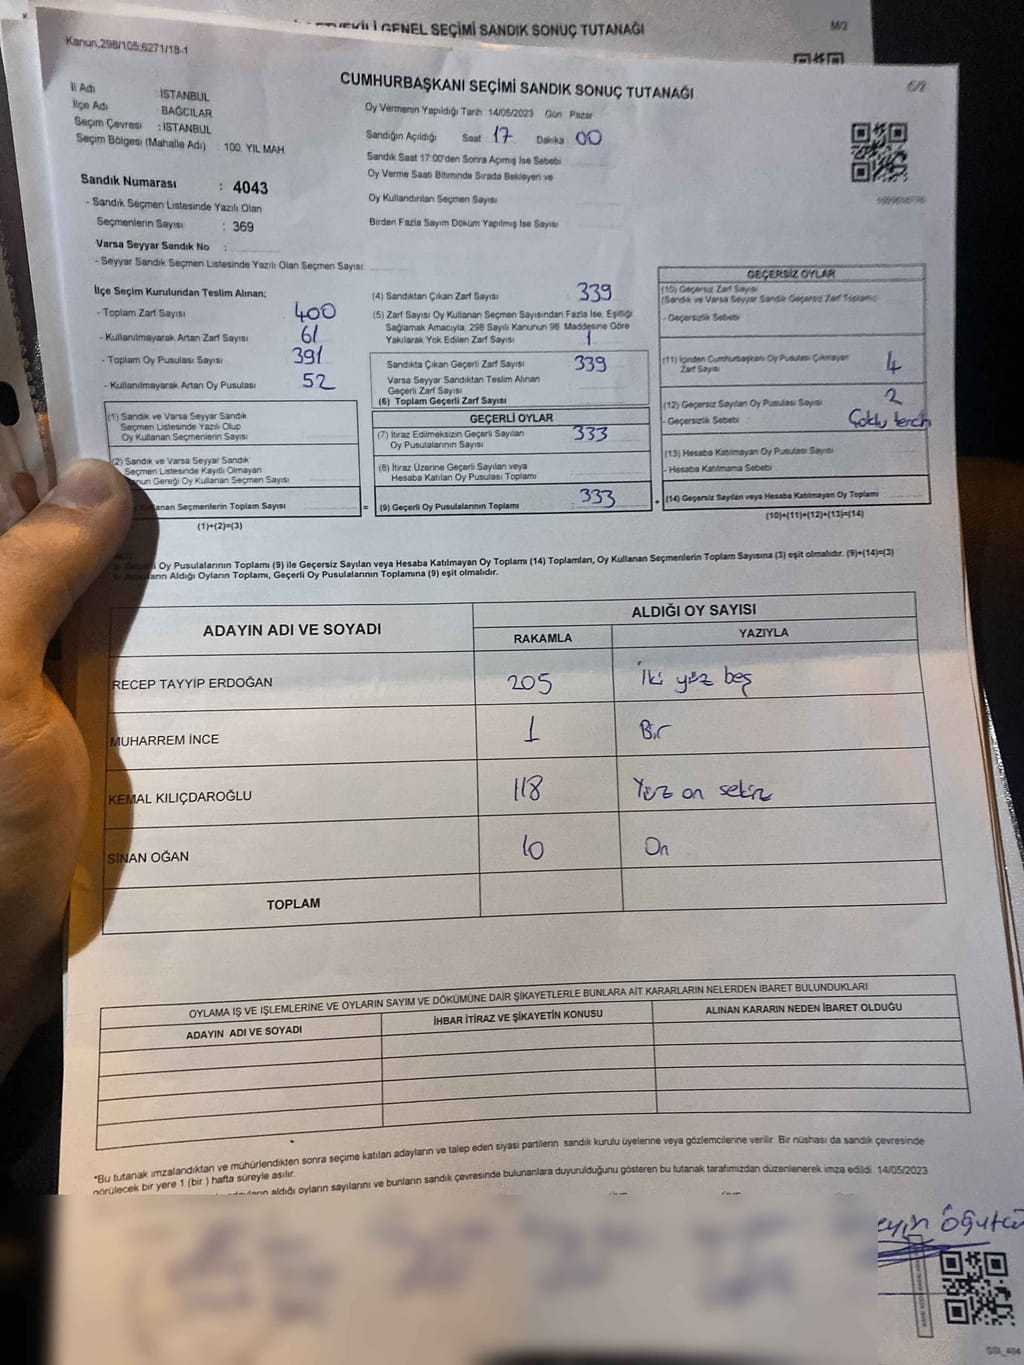 GENEL SEÇİMİ SANDIK SONUÇ TUTANAĞI
M/2
Kanun,298/105;6271/18-1
CUMHURBAŞKANI SEÇİMİ SANDIK SONUÇ TUTANAĞI
İl Adı : İSTANBUL
İlçe Adı BAĞCILAR
Seçim Çevresi : İSTANBUL
Seçim Bölgesi (Mahalle Adı) : 100. YIL MAH.
Oy Vermenin Yapıldığı Tarih 14/05/2023 Gün Pazar
Sandığın Açıldığı Saat 17 Dakika 00
Sandık Saat 17:00'den Sonra Açımış İse Sebebi
Oy Verme Saati Bitiminde Sırada Bekleyen ve
Oy Kullandırılan Seçmen Sayısı
Birden Fazla Sayım Döküm Yapılmış İse Sayısı
Sandık Numarası : 4043
- Sandık Seçmen Listesinde Yazılı Olan
Seçmenlerin Sayısı : 369
Varsa Seyyar Sandık No :
- Seyyar Sandık Seçmen Listesinde Yazılı Olan Seçmen Sayısı
İlçe Seçim Kurulundan Teslim Alınan;
- Toplam Zarf Sayısı 400
- Kullanılmayarak Artan Zarf Sayısı 61
- Toplam Oy Pusulası Sayısı 391
- Kullanılmayarak Artan Oy Pusulası 52
(1) Sandık ve Varsa Seyyar Sandık
Seçmen Listesinde Yazılı Olup
Oy Kullanan Seçmenlerin Sayısı
(2) Sandık ve Varsa Seyyar Sandık
Seçmen Listesinde Kayıtlı Olmayan
Gereği Oy Kullanan Seçmen Sayısı
Seçmenlerin Toplam Sayısı =
(1)+(2)=(3)
(4) Sandıktan Çıkan Zarf Sayısı 339
(5) Zarf Sayısı Oy Kullanan Seçmen Sayısından Fazla İse, Eşitliği
Sağlamak Amacıyla, 298 Sayılı Kanunun 98. Maddesine Göre
Yakılarak Yok Edilen Zarf Sayısı 1
Sandıkta Çıkan Geçerli Zarf Sayısı 339
Varsa Seyyar Sandıktan Teslim Alınan
Geçerli Zarf Sayısı
(6) Toplam Geçerli Zarf Sayısı
GEÇERLİ OYLAR
(7) İtiraz Edilmeksizin Geçerli Sayılan 333
Oy Pusulalarının Sayısı
(8) İtiraz Üzerine Geçerli Sayılan veya
Hesaba Katılan Oy Pusulası Toplamı
(9) Geçerli Oy Pusulalarının Toplamı 333 +
GEÇERSİZ OYLAR
(10) Geçersiz Zarf Sayısı
(Sandık ve Varsa Seyyar Sandık Geçersiz Zarf Toplamı)
- Geçersizlik Sebebi
(11) İçinden Cumhurbaşkanı Oy Pusulası Çıkmayan
Zarf Sayısı 4
(12) Geçersiz Sayılan Oy Pusulası Sayısı 2
- Geçersizlik Sebebi Çoklu tercih
(13) Hesaba Katılmayan Oy Pusulası Sayısı
- Hesaba Katılmama Sebebi
(14) Geçersiz Sayılan veya Hesaba Katılmayan Oy Toplamı
(10)+(11)+(12)+(13)=(14)
Oy Pusulalarının Toplamı (9) ile Geçersiz Sayılan veya Hesaba Katılmayan Oy Toplamı (14) Toplamları, Oy Kullanan Seçmenlerin Toplam Sayısına (3) eşit olmalıdır. (9)+(14)=(3)
Aldığı Oyların Toplamı, Geçerli Oy Pusulalarının Toplamına (9) eşit olmalıdır.
ADAYIN ADI VE SOYADI
ALDIĞI OY SAYISI
RAKAMLA YAZIYLA
RECEP TAYYİP ERDOĞAN 205 İki yüz beş
MUHARREM İNCE 1 Bir
KEMAL KILIÇDAROĞLU 118 Yüz on sekiz
SİNAN OĞAN 10 On
TOPLAM
OYLAMA İŞ VE İŞLEMLERİNE VE OYLARIN SAYIM VE DÖKÜMÜNE DAİR ŞİKAYETLERLE BUNLARA AİT KARARLARIN NELERDEN İBARET BULUNDUKLARI
ADAYIN ADI VE SOYADI İHBAR İTİRAZ VE ŞİKAYETİN KONUSU ALINAN KARARIN NEDEN İBARET OLDUĞU
*Bu tutanak imzalandıktan ve mühürlendikten sonra seçime katılan adayların ve talep eden siyasi partilerin sandık kurulu üyelerine veya gözlemcilerine verilir. Bir nüshası da sandık çevresinde
görülecek bir yere 1 (bir ) hafta süreyle asılır.
aldığı oyların sayılarını ve bunların sandık çevresinde bulunanlara duyurulduğunu gösteren bu tutanak tarafımızdan düzenlenerek imza edildi. 14/05/2023